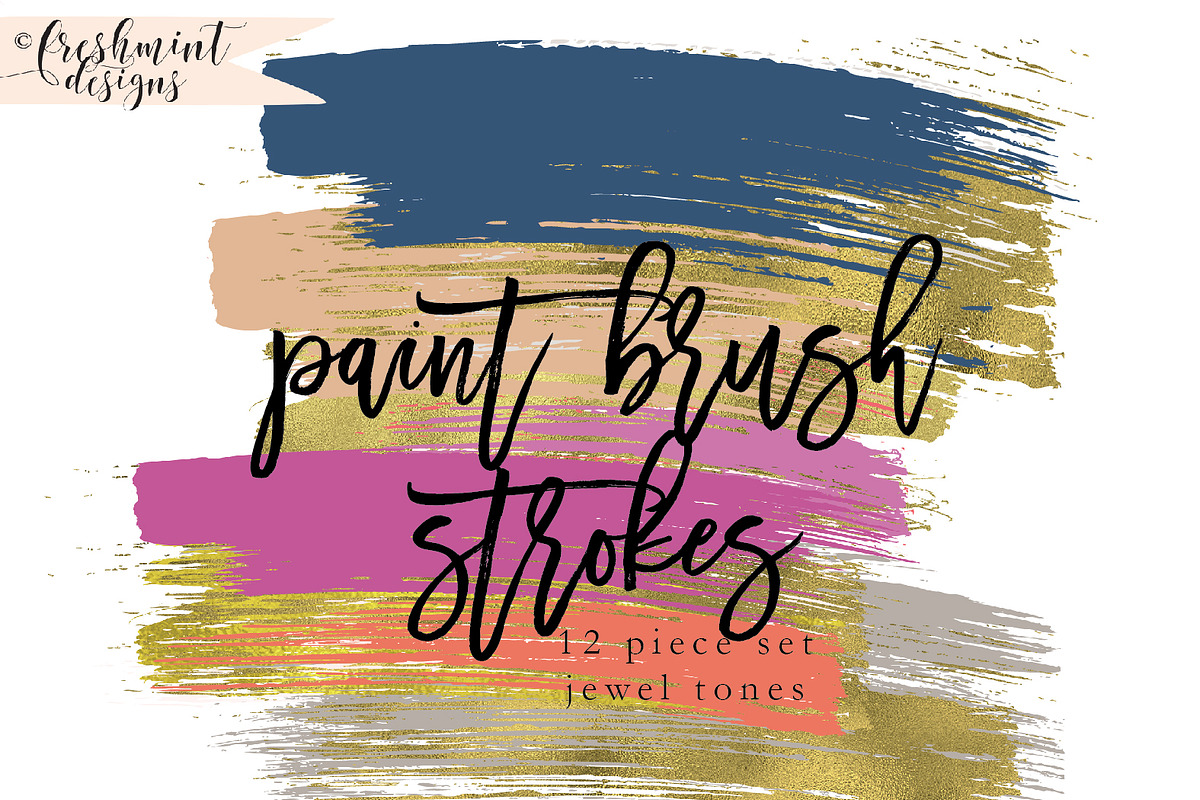 © freshmint
designs
paint brush
strokes
12 piece set
jewel tones